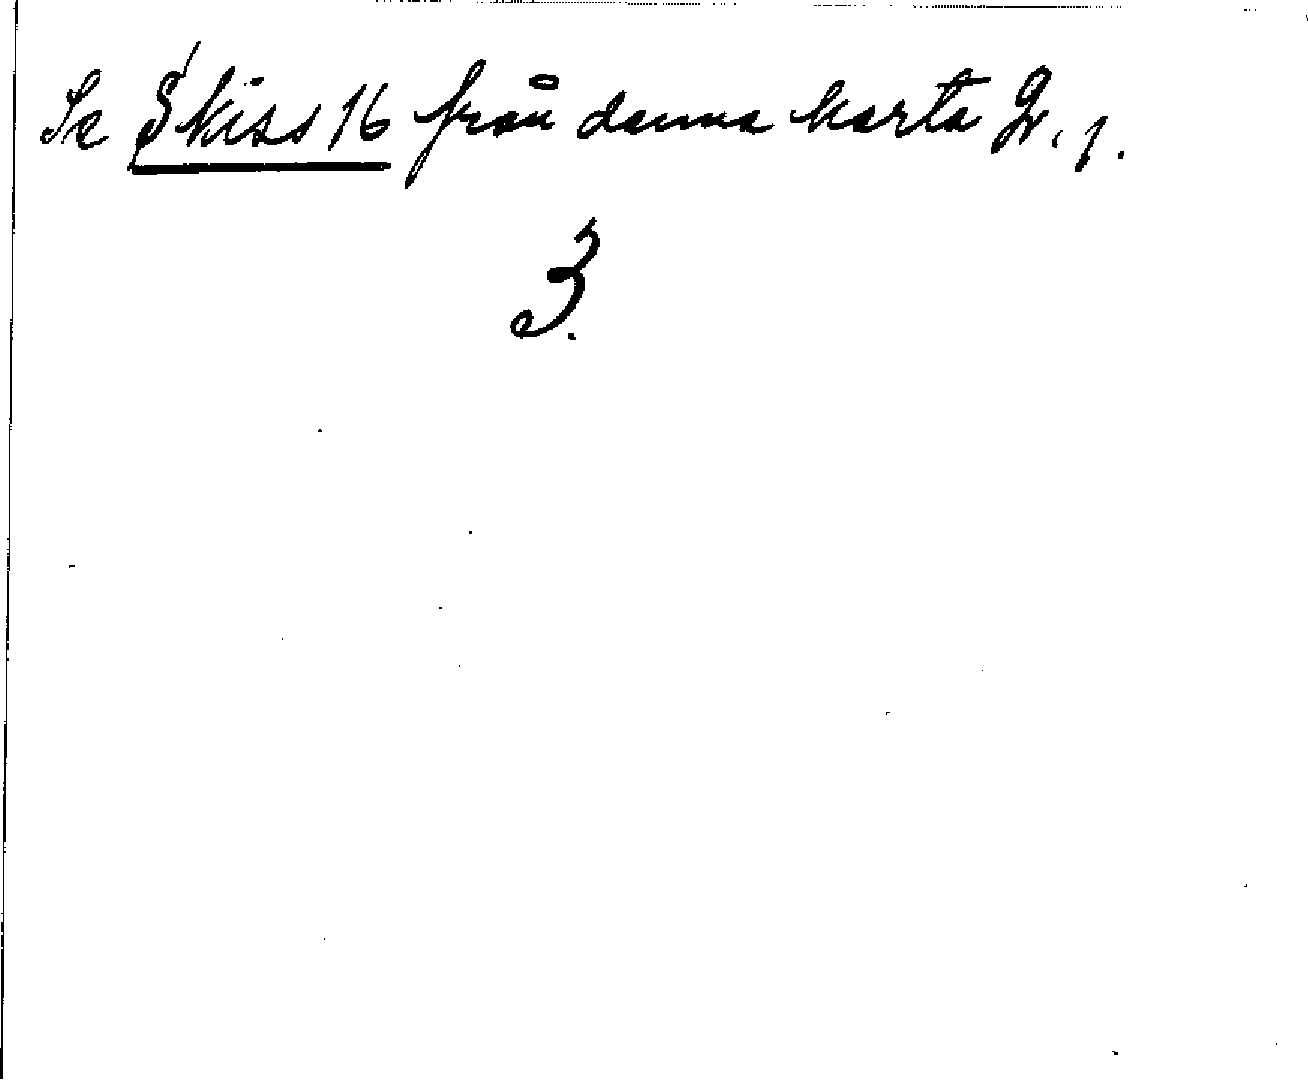 Se Skiss 16 från denna karta Gr. 1.
3.